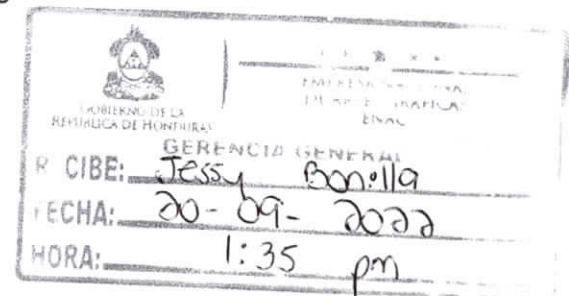 GOBIERNO DE LA
REPÚBLICA DE HONDURAS
EMPRESA NACIONAL
DE ARTES GRAFICAS
ENAG
GERENCIA GENERAL
R CIBE: Jessy Bonilla
FECHA: 20-09-2022
HORA: 1:35 pm